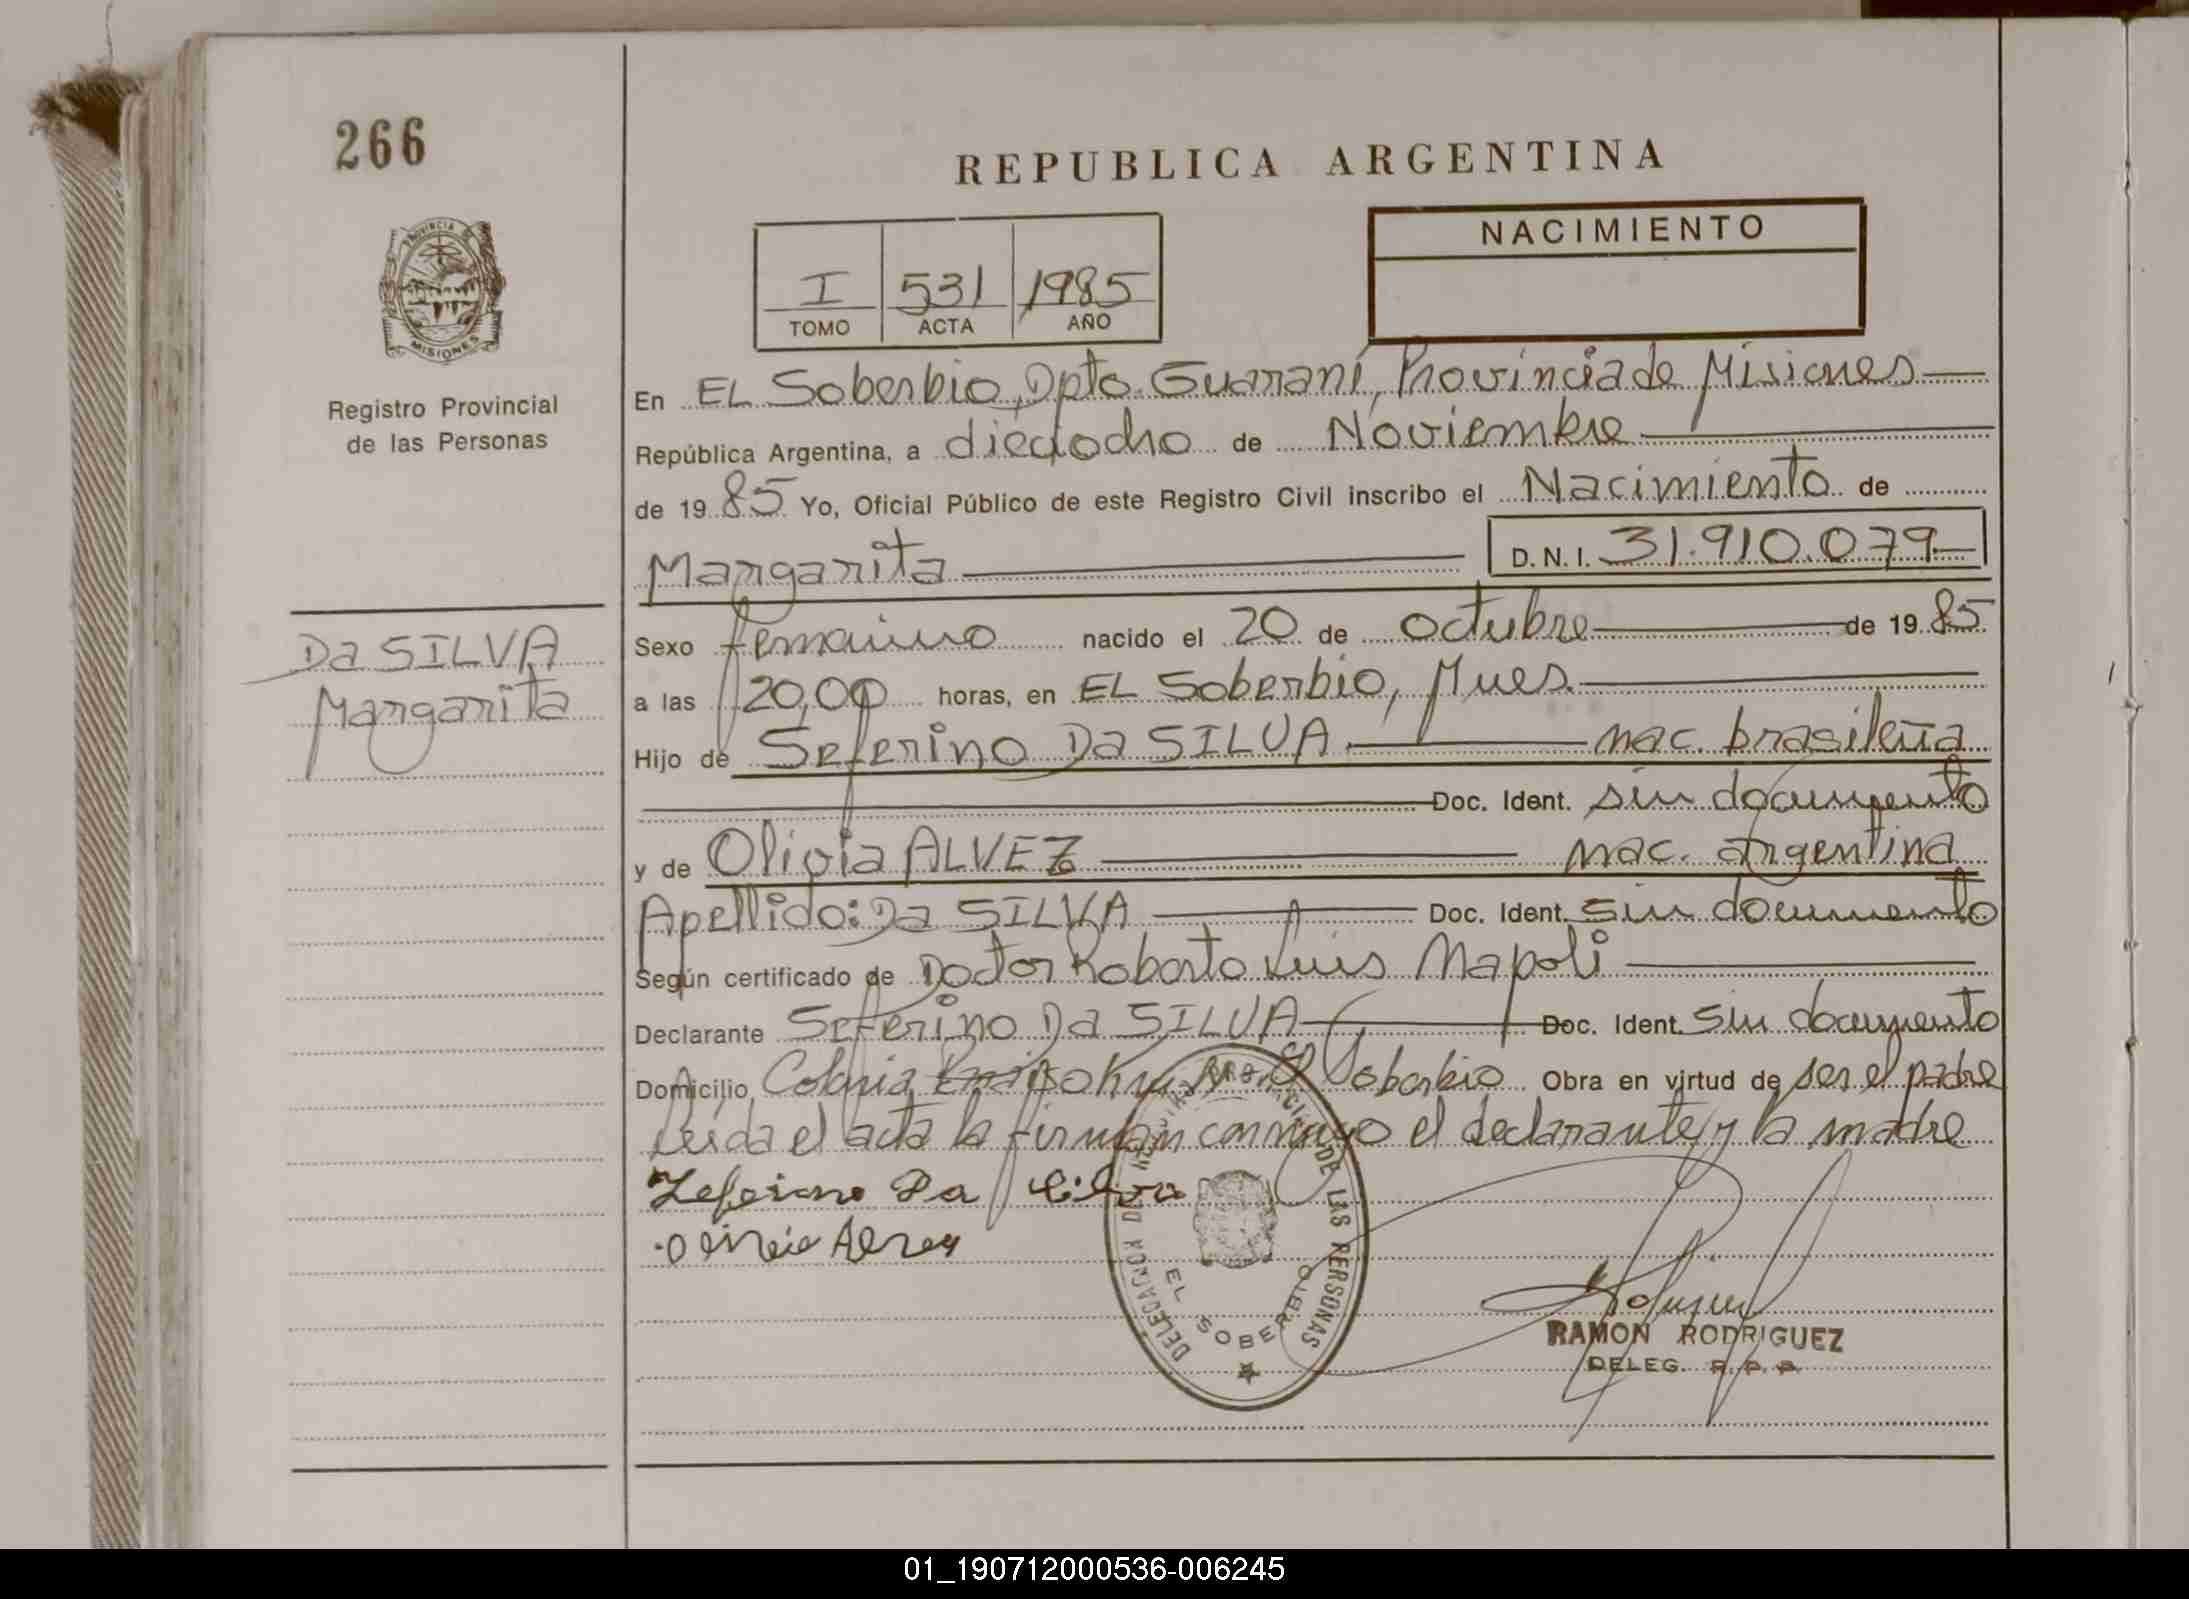 266
REPUBLICA ARGENTINA
PROVINCIA DE
MISIONES
Registro Provincial
de las Personas
NACIMIENTO
I 531 1985
TOMO ACTA AÑO
En EL Soberbio, Dpto. Guaraní, Provincia de Misiones
República Argentina, a dieciocho de Noviembre
de 1985 Yo, Oficial Público de este Registro Civil inscribo el Nacimiento de
Margarita D.N.I. 31.910.079
Da SILVA
Margarita
Sexo femenino nacido el 20 de octubre de 1985
a las 20,00 horas, en EL Soberbio, Mnes.
Hijo de Seferino Da SILVA nac. brasileña
Doc. Ident. sin documento
y de Olivia ALVEZ nac. argentina
Apellido: Da SILVA Doc. Ident. sin documento
Según certificado de Doctor Roberto Luis Napoli
Declarante Seferino Da SILVA Doc. Ident. sin documento
Domicilio Colonia El Soberbio Obra en virtud de ser el padre
Leída el acta la firman conmigo el declarante y la madre
Zeferino Da Silva
DELEGACION REGISTRO PROVINCIAL DE LAS PERSONAS
EL SOBERBIO
RAMON RODRIGUEZ
DELEG. R. P. P.
01_190712000536-006245